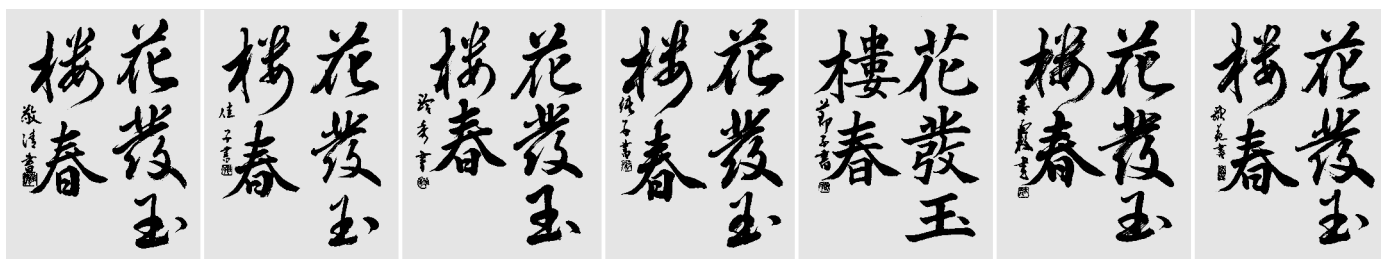 花發玉
楼春
敬清書
花發玉
楼春
佳子書
花發玉
楼春
玲秀書
花發玉
楼春
子書
花發玉
樓春
節子書
花發玉
楼春
書
花發玉
楼春
書